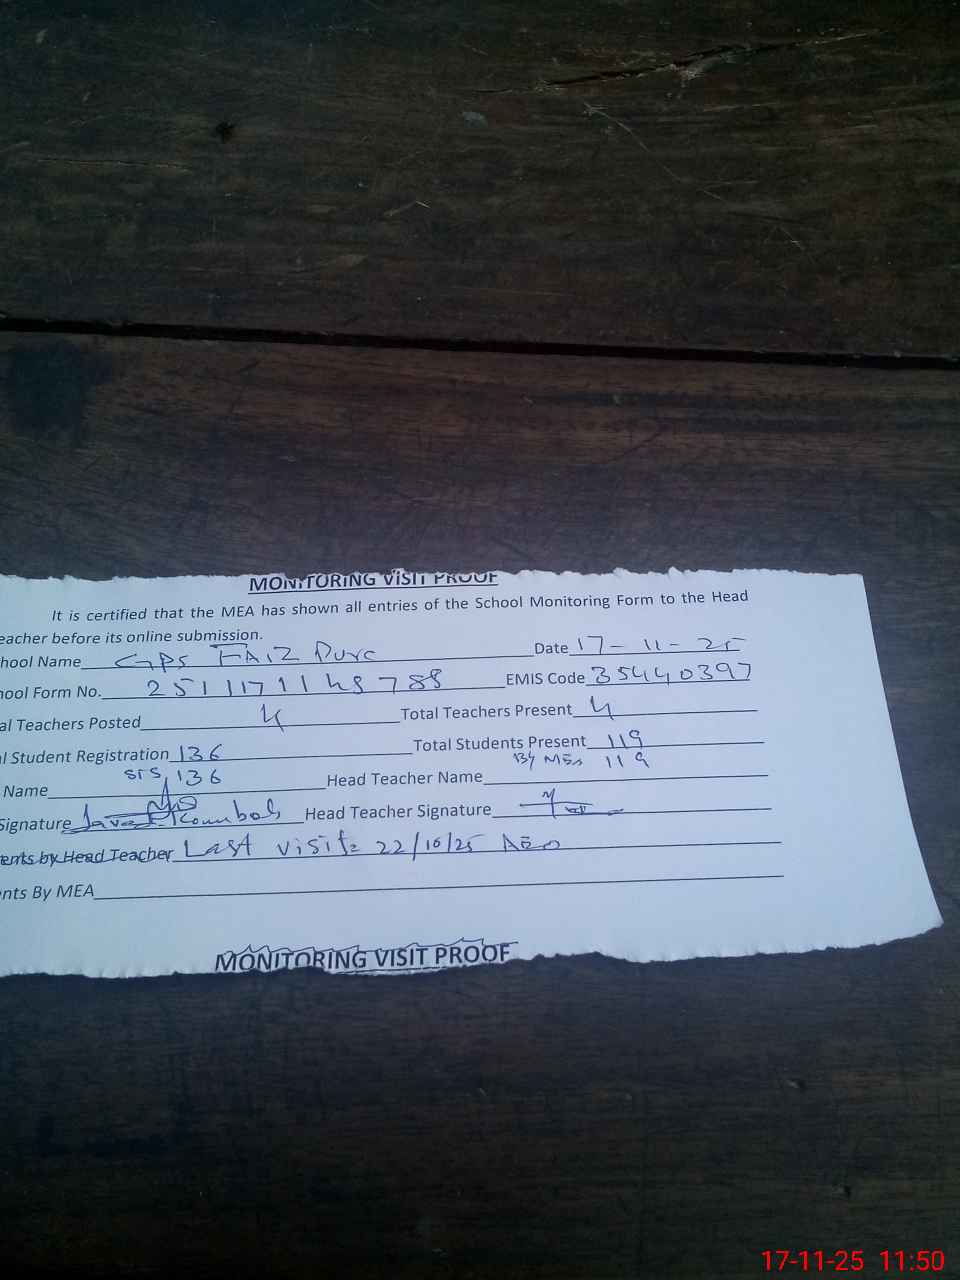 MONITORING VISIT PROOF
It is certified that the MEA has shown all entries of the School Monitoring Form to the Head
eacher before its online submission.
hool Name GPS FAIZ Pura Date 17-11-25
hool Form No. EMIS Code 35440397
al Teachers Posted 4 Total Teachers Present 4
l Student Registration 136 Total Students Present 119
SIS 136 By MEA 119
Name Head Teacher Name
Signature Head Teacher Signature
ents by Head Teacher Last visit 22/10/25 AEO
nts By MEA
MONITORING VISIT PROOF
17-11-25 11:50